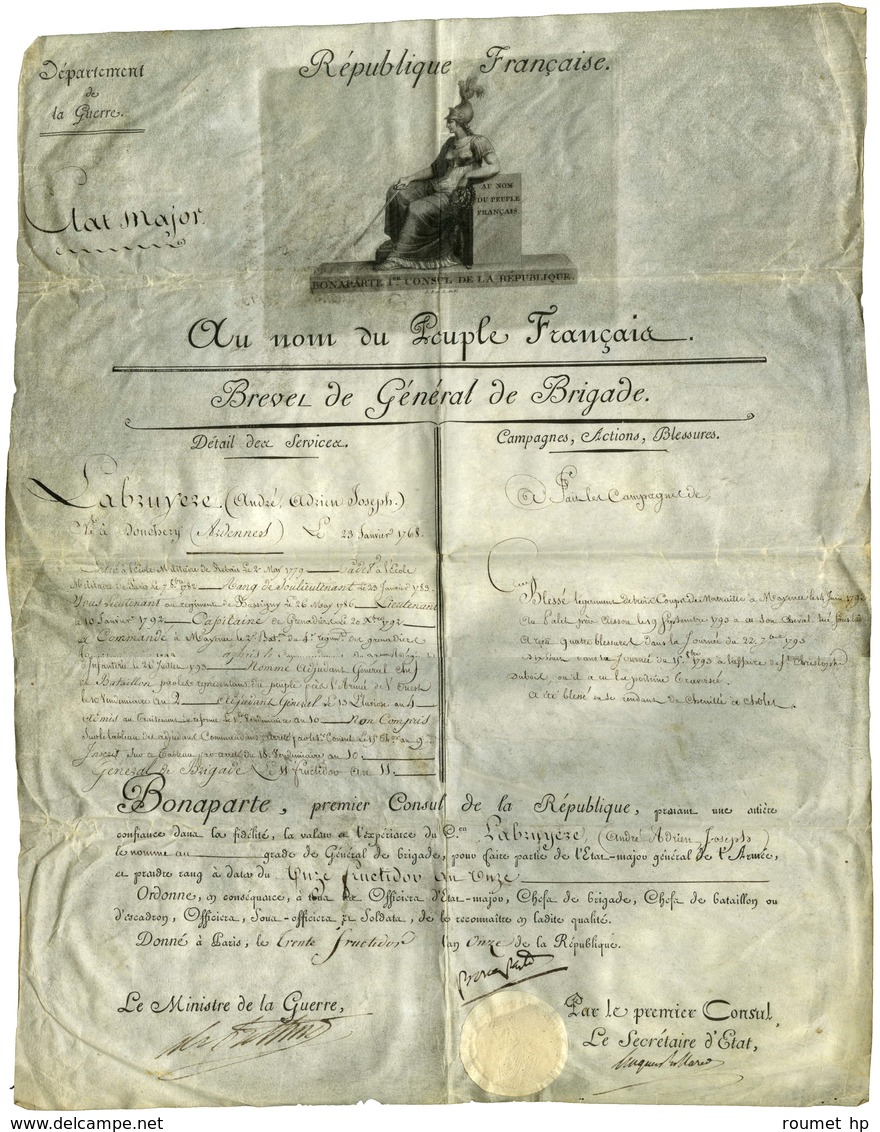 République Française.
Département
de
la Guerre.
Etat major
AU NOM
DU PEUPLE
FRANÇAIS.
BONAPARTE 1er CONSUL DE LA RÉPUBLIQUE.
Au nom du Peuple Français.
Brevet de Général de Brigade.
Détail des Services.
Labruyere (André, Adrien Joseph.)
Né à Donchery (Ardennes) Le 23 Janvier 1768.
à l'école Militaire de Rebais Le 2 May 1779 Cadet à l'école
Militaire de Paris le 7 8bre 1782 Rang de Souslieutenant le 23 Janvier 1783.
Sous lieutenant au régiment de Bassigny le 26 May 1786 Lieutenant
le 10 Janvier 1792 Capitaine de Grenadiers le 20 Xbre 1792
a Commandé à Mayence le 2e Batn du 4e régimt de grenadiers
d'Infanterie le Nommé Adjudant Général Chef
de Bataillon par les représentans du peuple près l'Armée de l'Ouest
le 10 Vendemiaire an 2 Adjudant Général le 13 an 4
admis au traitement de réforme le 1er Vendemiaire an 10 Non Compris
Sur le tableau des adjudans Commandans an 9
Inscrit Sur ce tableau par arrêté du 18 Vendemiaire an 10.
Général de Brigade Le 11 fructidor an 11.
Campagnes, Actions, Blessures.
A Fait les Campagnes de
Blessé légèrement de trois Coups de Mitraille à Mayence le 4 Juin 1793
au Palet près Clisson le 19 Septembre 1793 a eu Son Cheval tué sous lui
A reçu quatre blessures dans la Journée du 22 1793
dans la Journée du 15 8bre 1793 à l'affaire de St Christophe
où il a eu la poitrine traversée.
A été blessé en se rendant de Chemillé à Cholet
Bonaparte, premier Consul de la République, prenant une entière
confiance dans la fidélité, la valeur et l'expérience du Cen Labruyere (André Adrien Joseph)
le nomme au grade de Général de brigade, pour faire partie de l'Etat-major général de l'Armée,
et prendre rang à dater du Onze fructidor An Onze
Ordonne, en conséquence, à tous les Officiers d'Etat-major, Chefs de brigade, Chefs de bataillon ou
d'escadron, Officiers, Sous-officiers et Soldats, de le reconnaître en ladite qualité.
Donné à Paris, le trente fructidor l'an Onze de la République.
Bonaparte
Le Ministre de la Guerre,
Par le premier Consul,
Le Secrétaire d'Etat,
Hugues B Maret
roumet hp